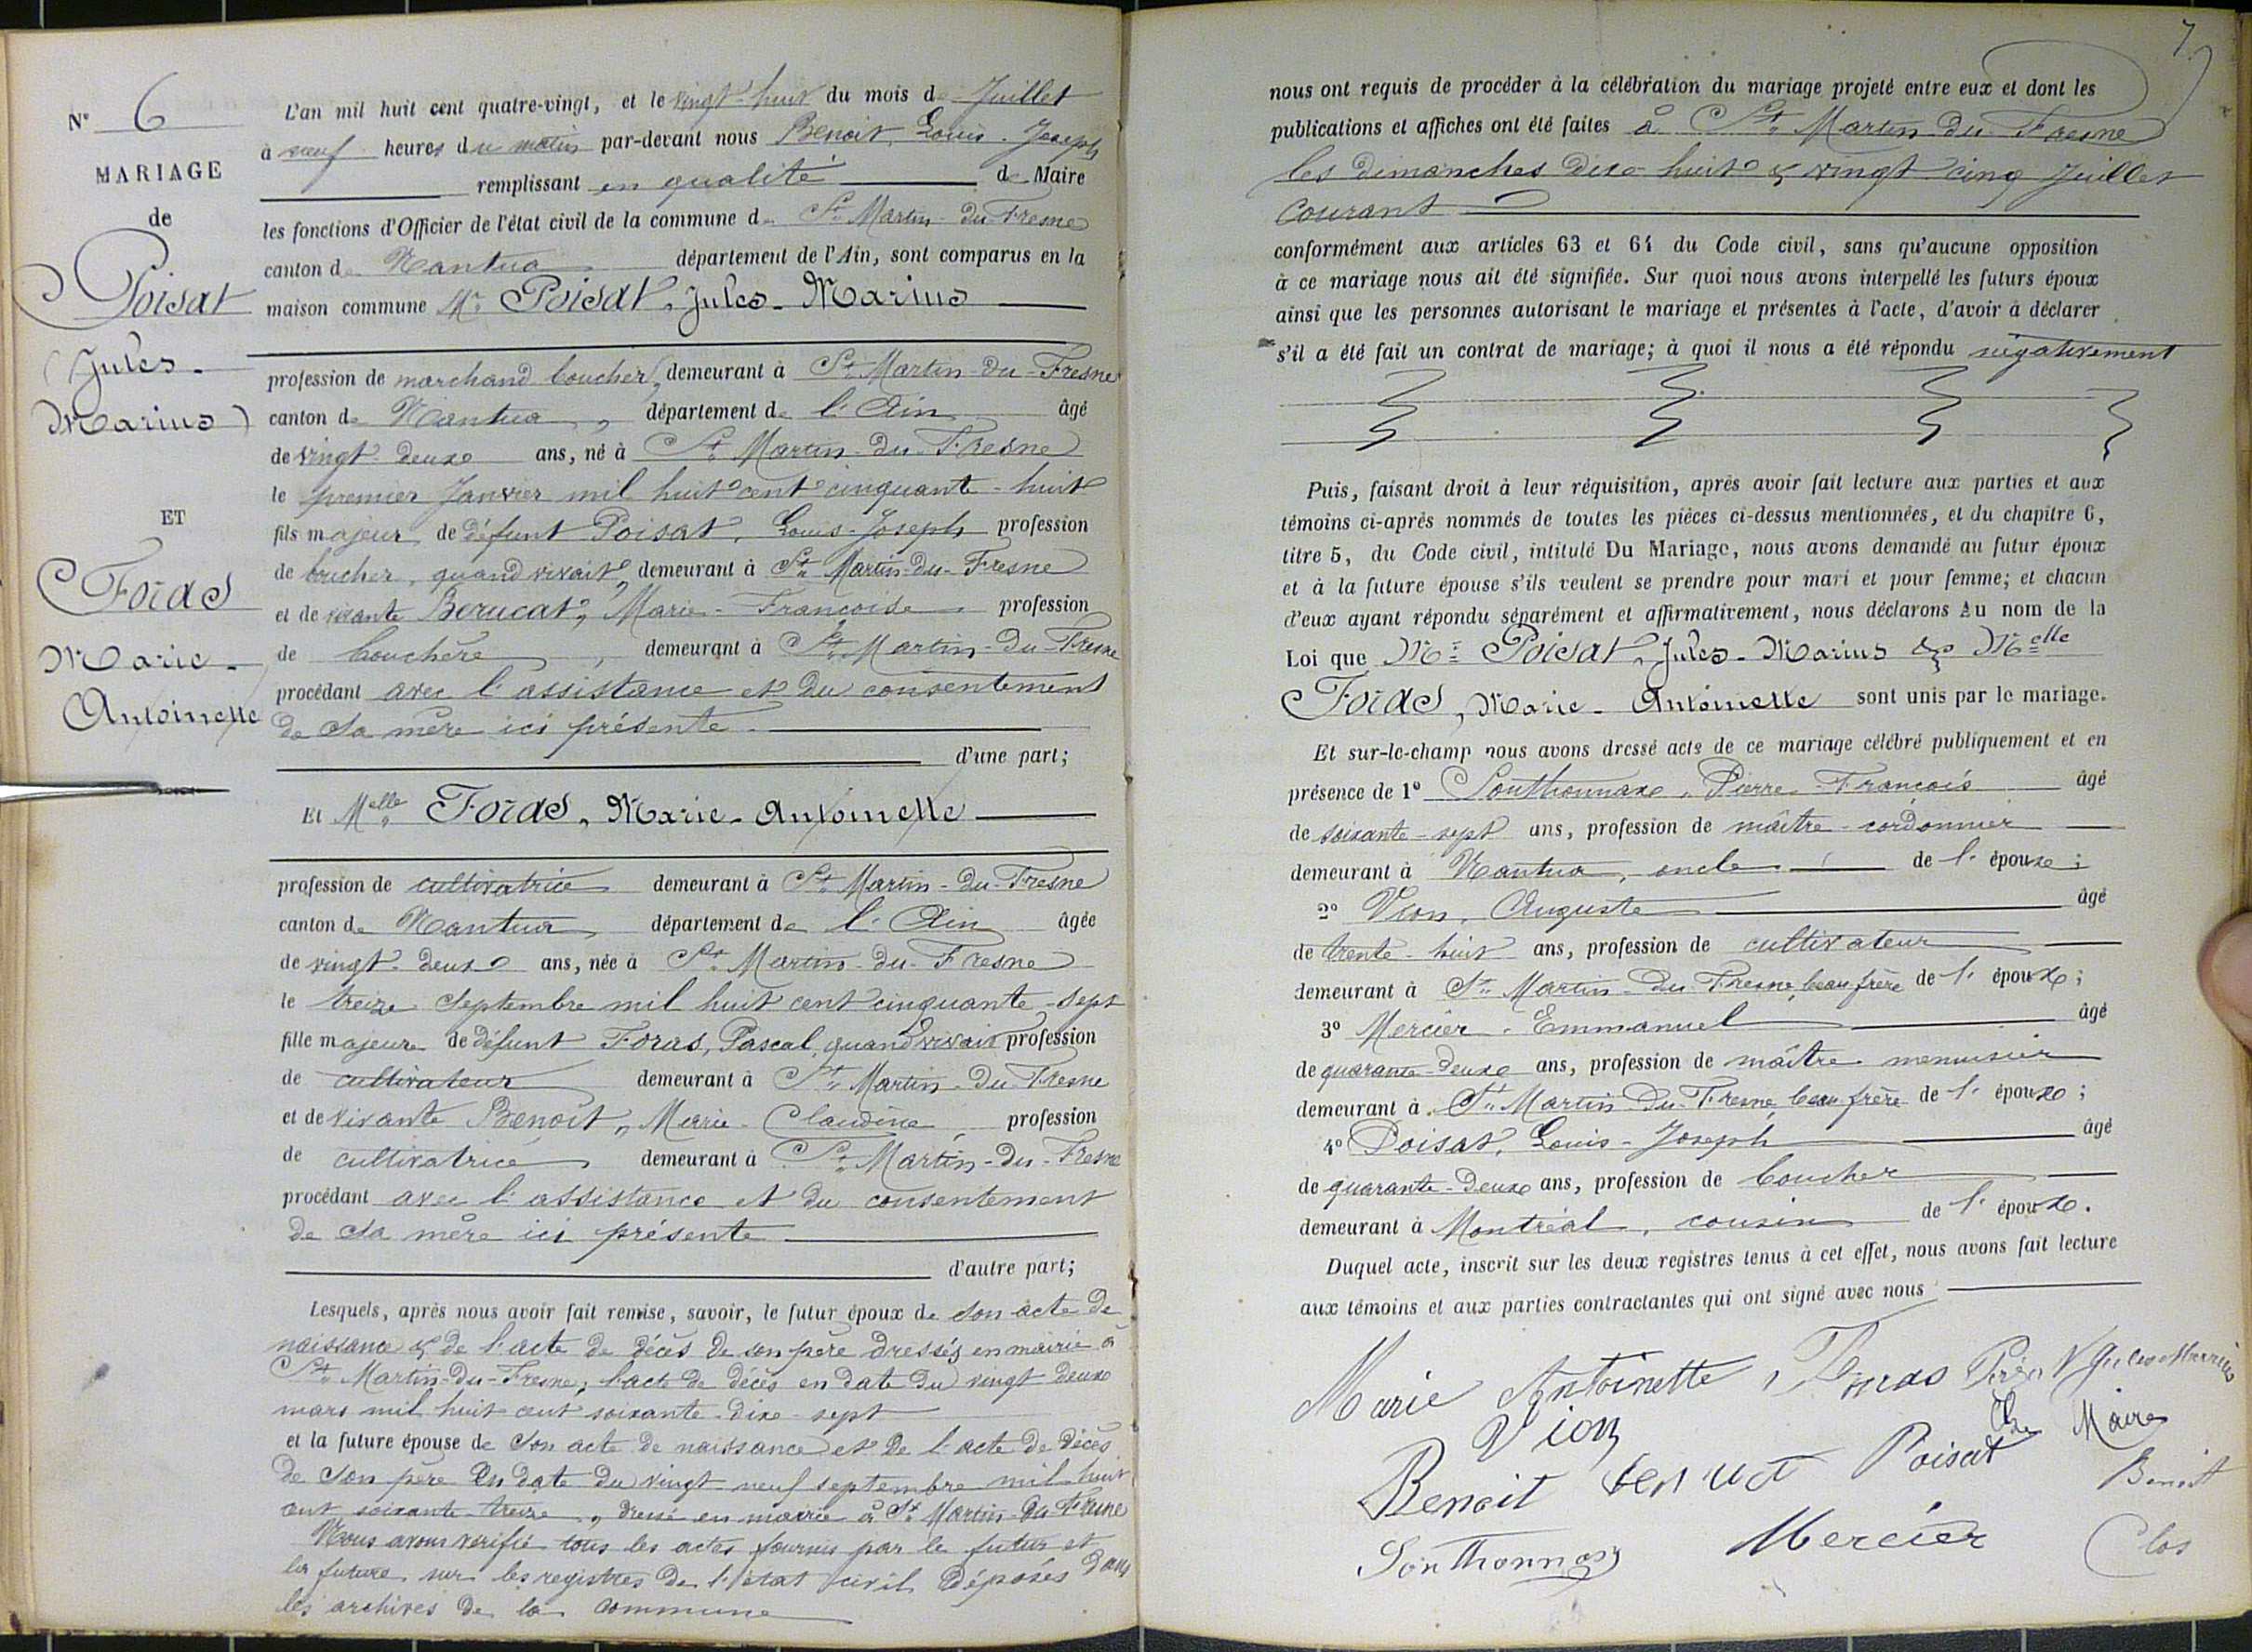 N° 6
MARIAGE
de
Poisat
(Jules-
Marius)
ET
Foras
Marie-
Antoinette
L'an mil huit cent quatre-vingt, et le vingt-huit du mois de Juillet
à neuf heures du matin par-devant nous Benoit, Louis-Joseph
remplissant en qualité de Maire
les fonctions d'Officier de l'état civil de la commune de St Martin-du-Fresne
canton de Nantua département de l'Ain, sont comparus en la
maison commune Mr Poisat, Jules-Marius
profession de marchand boucher, demeurant à St Martin-du-Fresne
canton de Nantua, département de l'Ain âgé
de vingt-deux ans, né à St Martin-du-Fresne
le premier Janvier mil huit cent cinquante-huit
fils majeur de défunt Poisat, Louis-Joseph profession
de boucher, quand vivait, demeurant à St Martin-du-Fresne
et de vivante Berucat, Marie-Françoise profession
de bouchère, demeurant à St Martin-du-Fresne
procédant avec l'assistance et du consentement
de sa mère ici présente
d'une part;
Et Melle Foras, Marie-Antoinette
profession de cultivatrice demeurant à St Martin-du-Fresne
canton de Nantua département de l'Ain âgée
de vingt-deux ans, née à St Martin-du-Fresne
le treize Septembre mil huit cent cinquante-sept
fille majeure de défunt Foras, Pascal, quand vivait profession
de cultivateur demeurant à St Martin-du-Fresne
et de vivante Benoit, Marie-Claudine, profession
de cultivatrice demeurant à St Martin-du-Fresne
procédant avec l'assistance et du consentement
de sa mère ici présente
d'autre part;
Lesquels, après nous avoir fait remise, savoir, le futur époux de son acte de
naissance & de l'acte de décès de son père dressés en mairie à
St Martin-du-Fresne, l'acte de décès en date du vingt deux
mars mil huit cent soixante-dix-sept
et la future épouse de son acte de naissance et de l'acte de décès
de son père en date du vingt neuf septembre mil huit
cent soixante-treize, dressé en mairie à St Martin-du-Fresne
Nous avons vérifié tous les actes fournis par le futur et
la future sur les registres de l'état civil déposés dans
les archives de la commune
7
nous ont requis de procéder à la célébration du mariage projeté entre eux et dont les
publications et affiches ont été faites à St Martin-du-Fresne
les dimanches dix-huit & vingt-cinq Juillet
courant
conformément aux articles 63 et 64 du Code civil, sans qu'aucune opposition
à ce mariage nous ait été signifiée. Sur quoi nous avons interpellé les futurs époux
ainsi que les personnes autorisant le mariage et présentes à l'acte, d'avoir à déclarer
s'il a été fait un contrat de mariage; à quoi il nous a été répondu négativement
Puis, faisant droit à leur réquisition, après avoir fait lecture aux parties et aux
témoins ci-après nommés de toutes les pièces ci-dessus mentionnées, et du chapitre 6,
titre 5, du Code civil, intitulé Du Mariage, nous avons demandé au futur époux
et à la future épouse s'ils veulent se prendre pour mari et pour femme; et chacun
d'eux ayant répondu séparément et affirmativement, nous déclarons au nom de la
Loi que Mr Poisat, Jules-Marius & Melle
Foras, Marie-Antoinette sont unis par le mariage.
Et sur-le-champ nous avons dressé acte de ce mariage célébré publiquement et en
présence de 1° Sonthonnax, Pierre-François âgé
de soixante-sept ans, profession de maître-cordonnier
demeurant à Nantua, oncle de l'épouse;
2° Vion, Auguste âgé
de trente-huit ans, profession de cultivateur
demeurant à St Martin-du-Fresne, beau frère de l'époux;
3° Mercier, Emmanuel âgé
de quarante-deux ans, profession de maître menuisier
demeurant à St Martin-du-Fresne, beau frère de l'époux;
4° Poisat, Louis-Joseph âgé
de quarante-deux ans, profession de boucher
demeurant à Montréal, cousin de l'époux.
Duquel acte, inscrit sur les deux registres tenus à cet effet, nous avons fait lecture
aux témoins et aux parties contractantes qui ont signé avec nous
Marie Antoinette Foras Poisat Jules Marius
Vion Le Maire
Benoit Poisat Benoit
Sonthonnax Mercier Clos